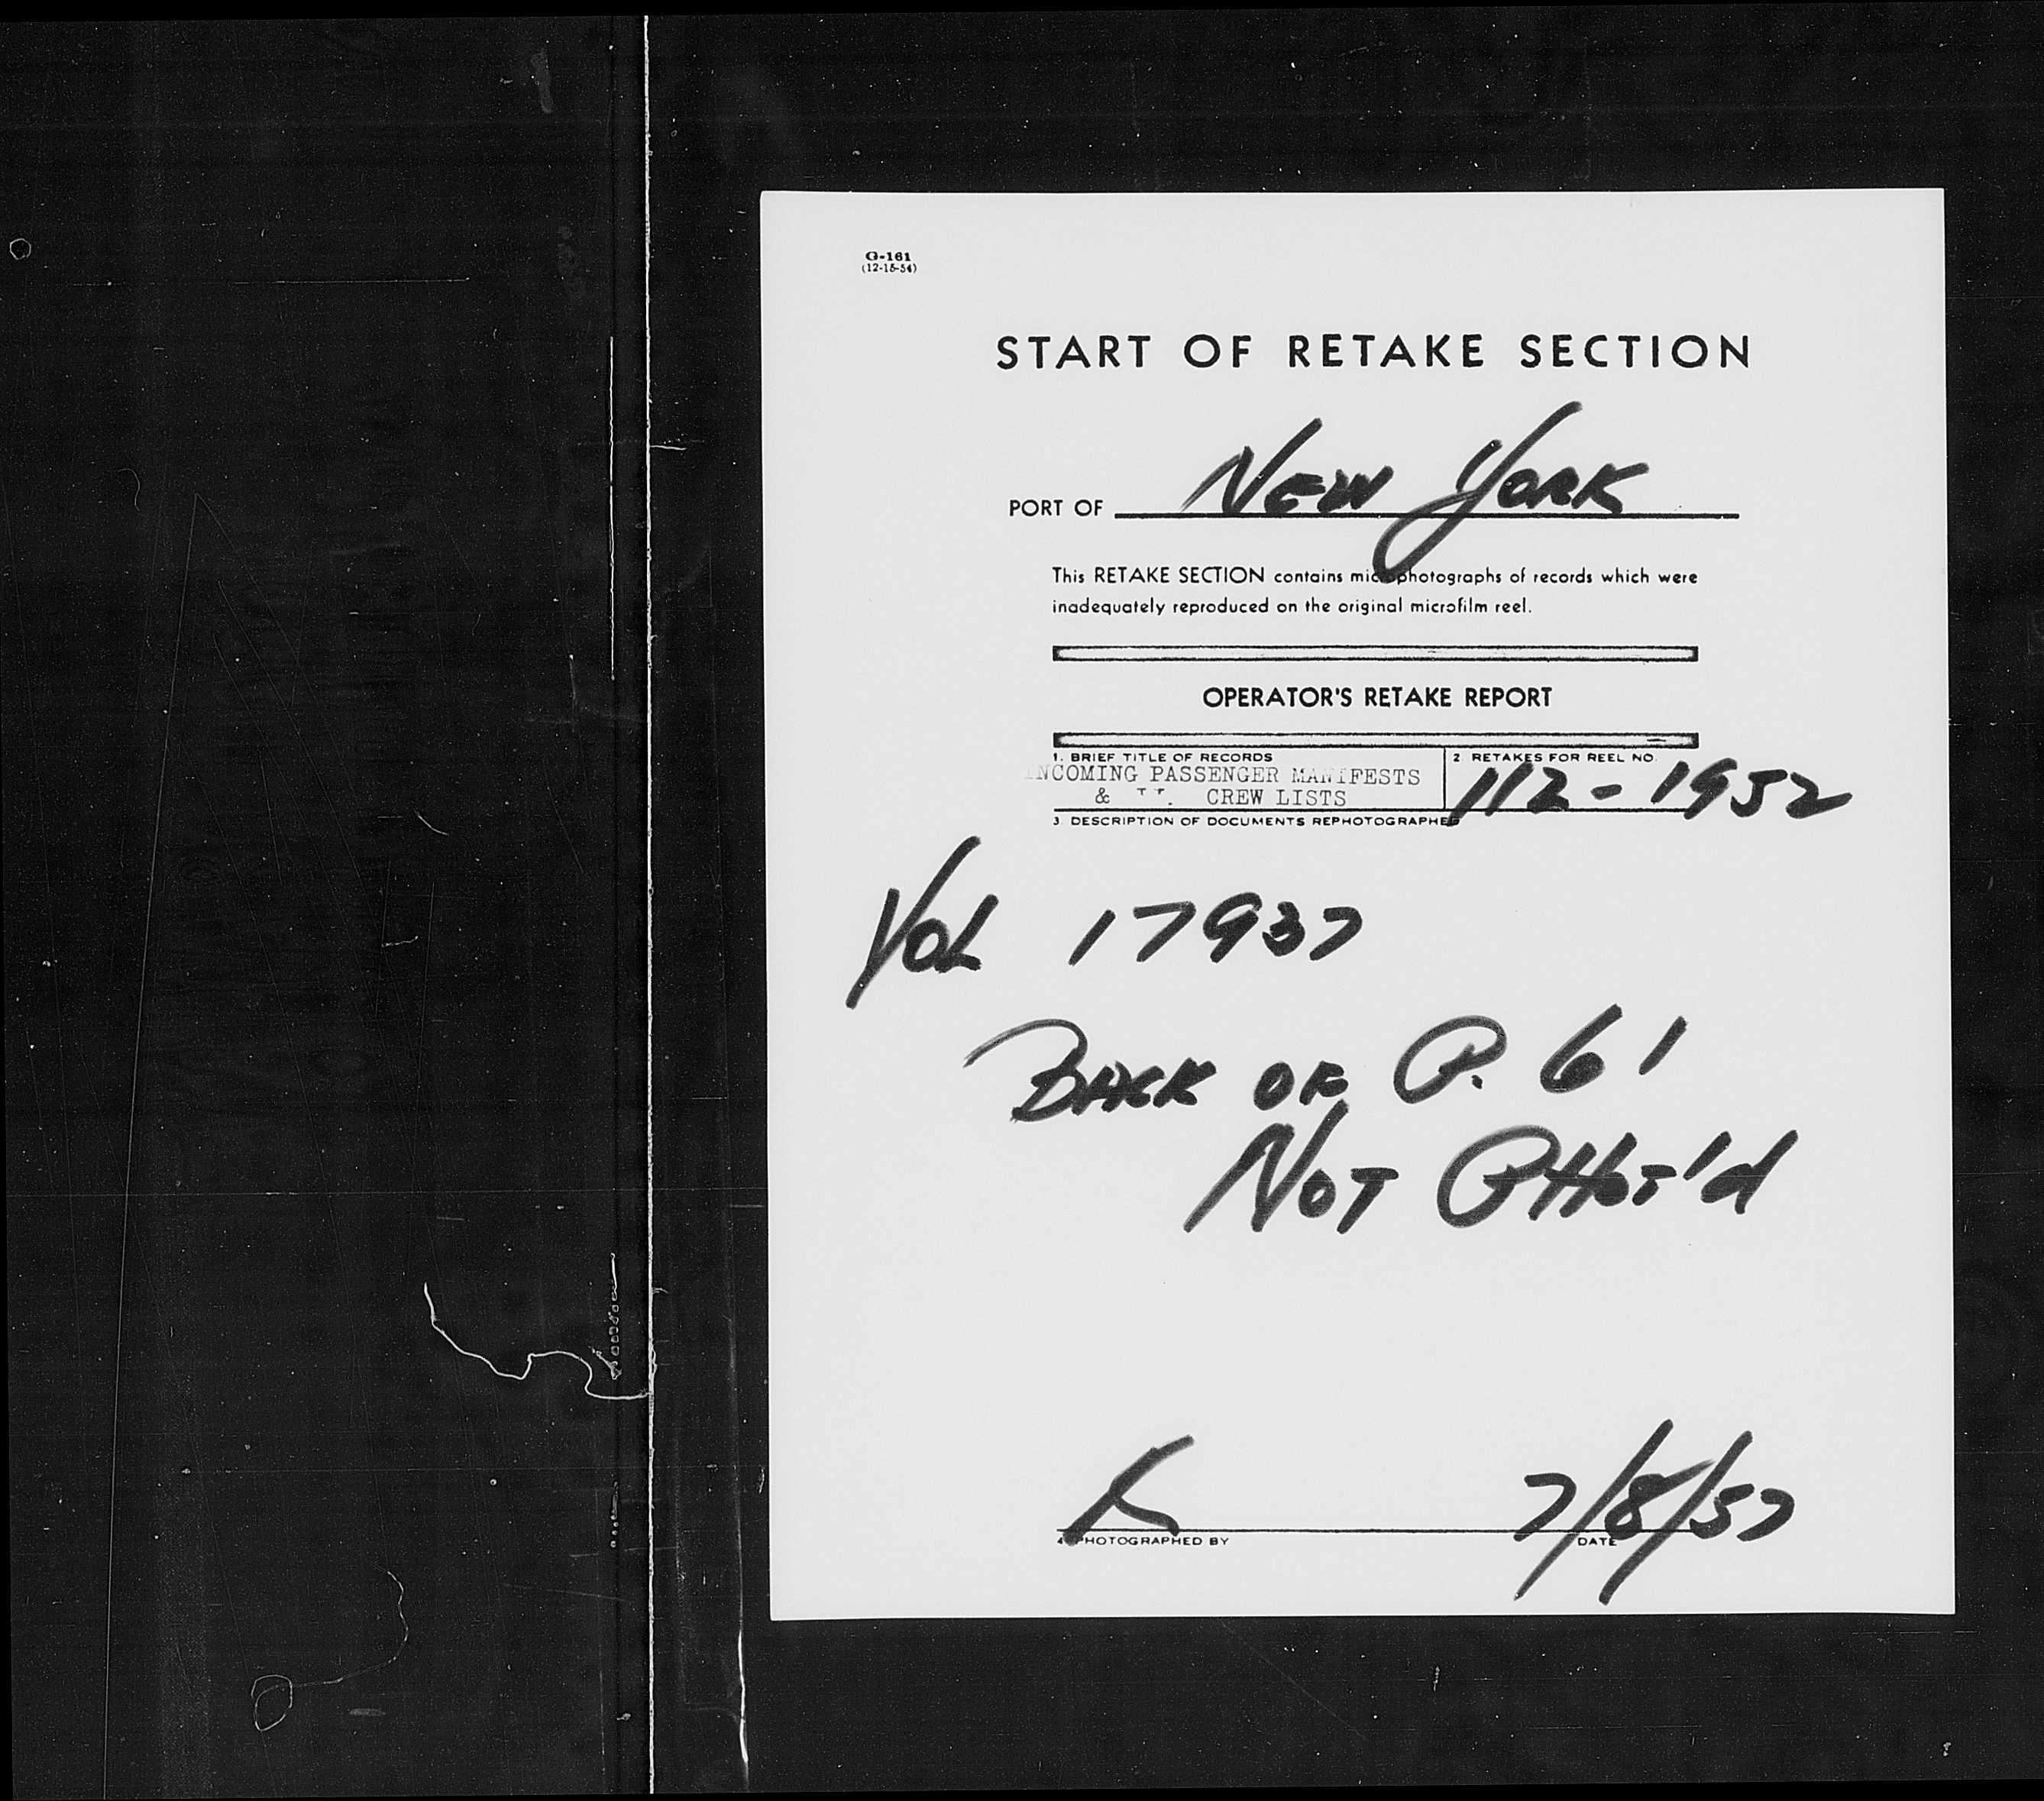 G-161
(12-15-54)
START OF RETAKE SECTION
PORT OF NEW YORK
This RETAKE SECTION contains microphotographs of records which were
inadequately reproduced on the original microfilm reel.
OPERATOR'S RETAKE REPORT
1. BRIEF TITLE OF RECORDS
INCOMING PASSENGER MANIFESTS
& CREW LISTS
2 RETAKES FOR REEL NO.
112-1952
3 DESCRIPTION OF DOCUMENTS REPHOTOGRAPHED
VOL 17937
BACK OF P. 61
NOT PHOT'd
K 7/8/57
4 PHOTOGRAPHED BY DATE